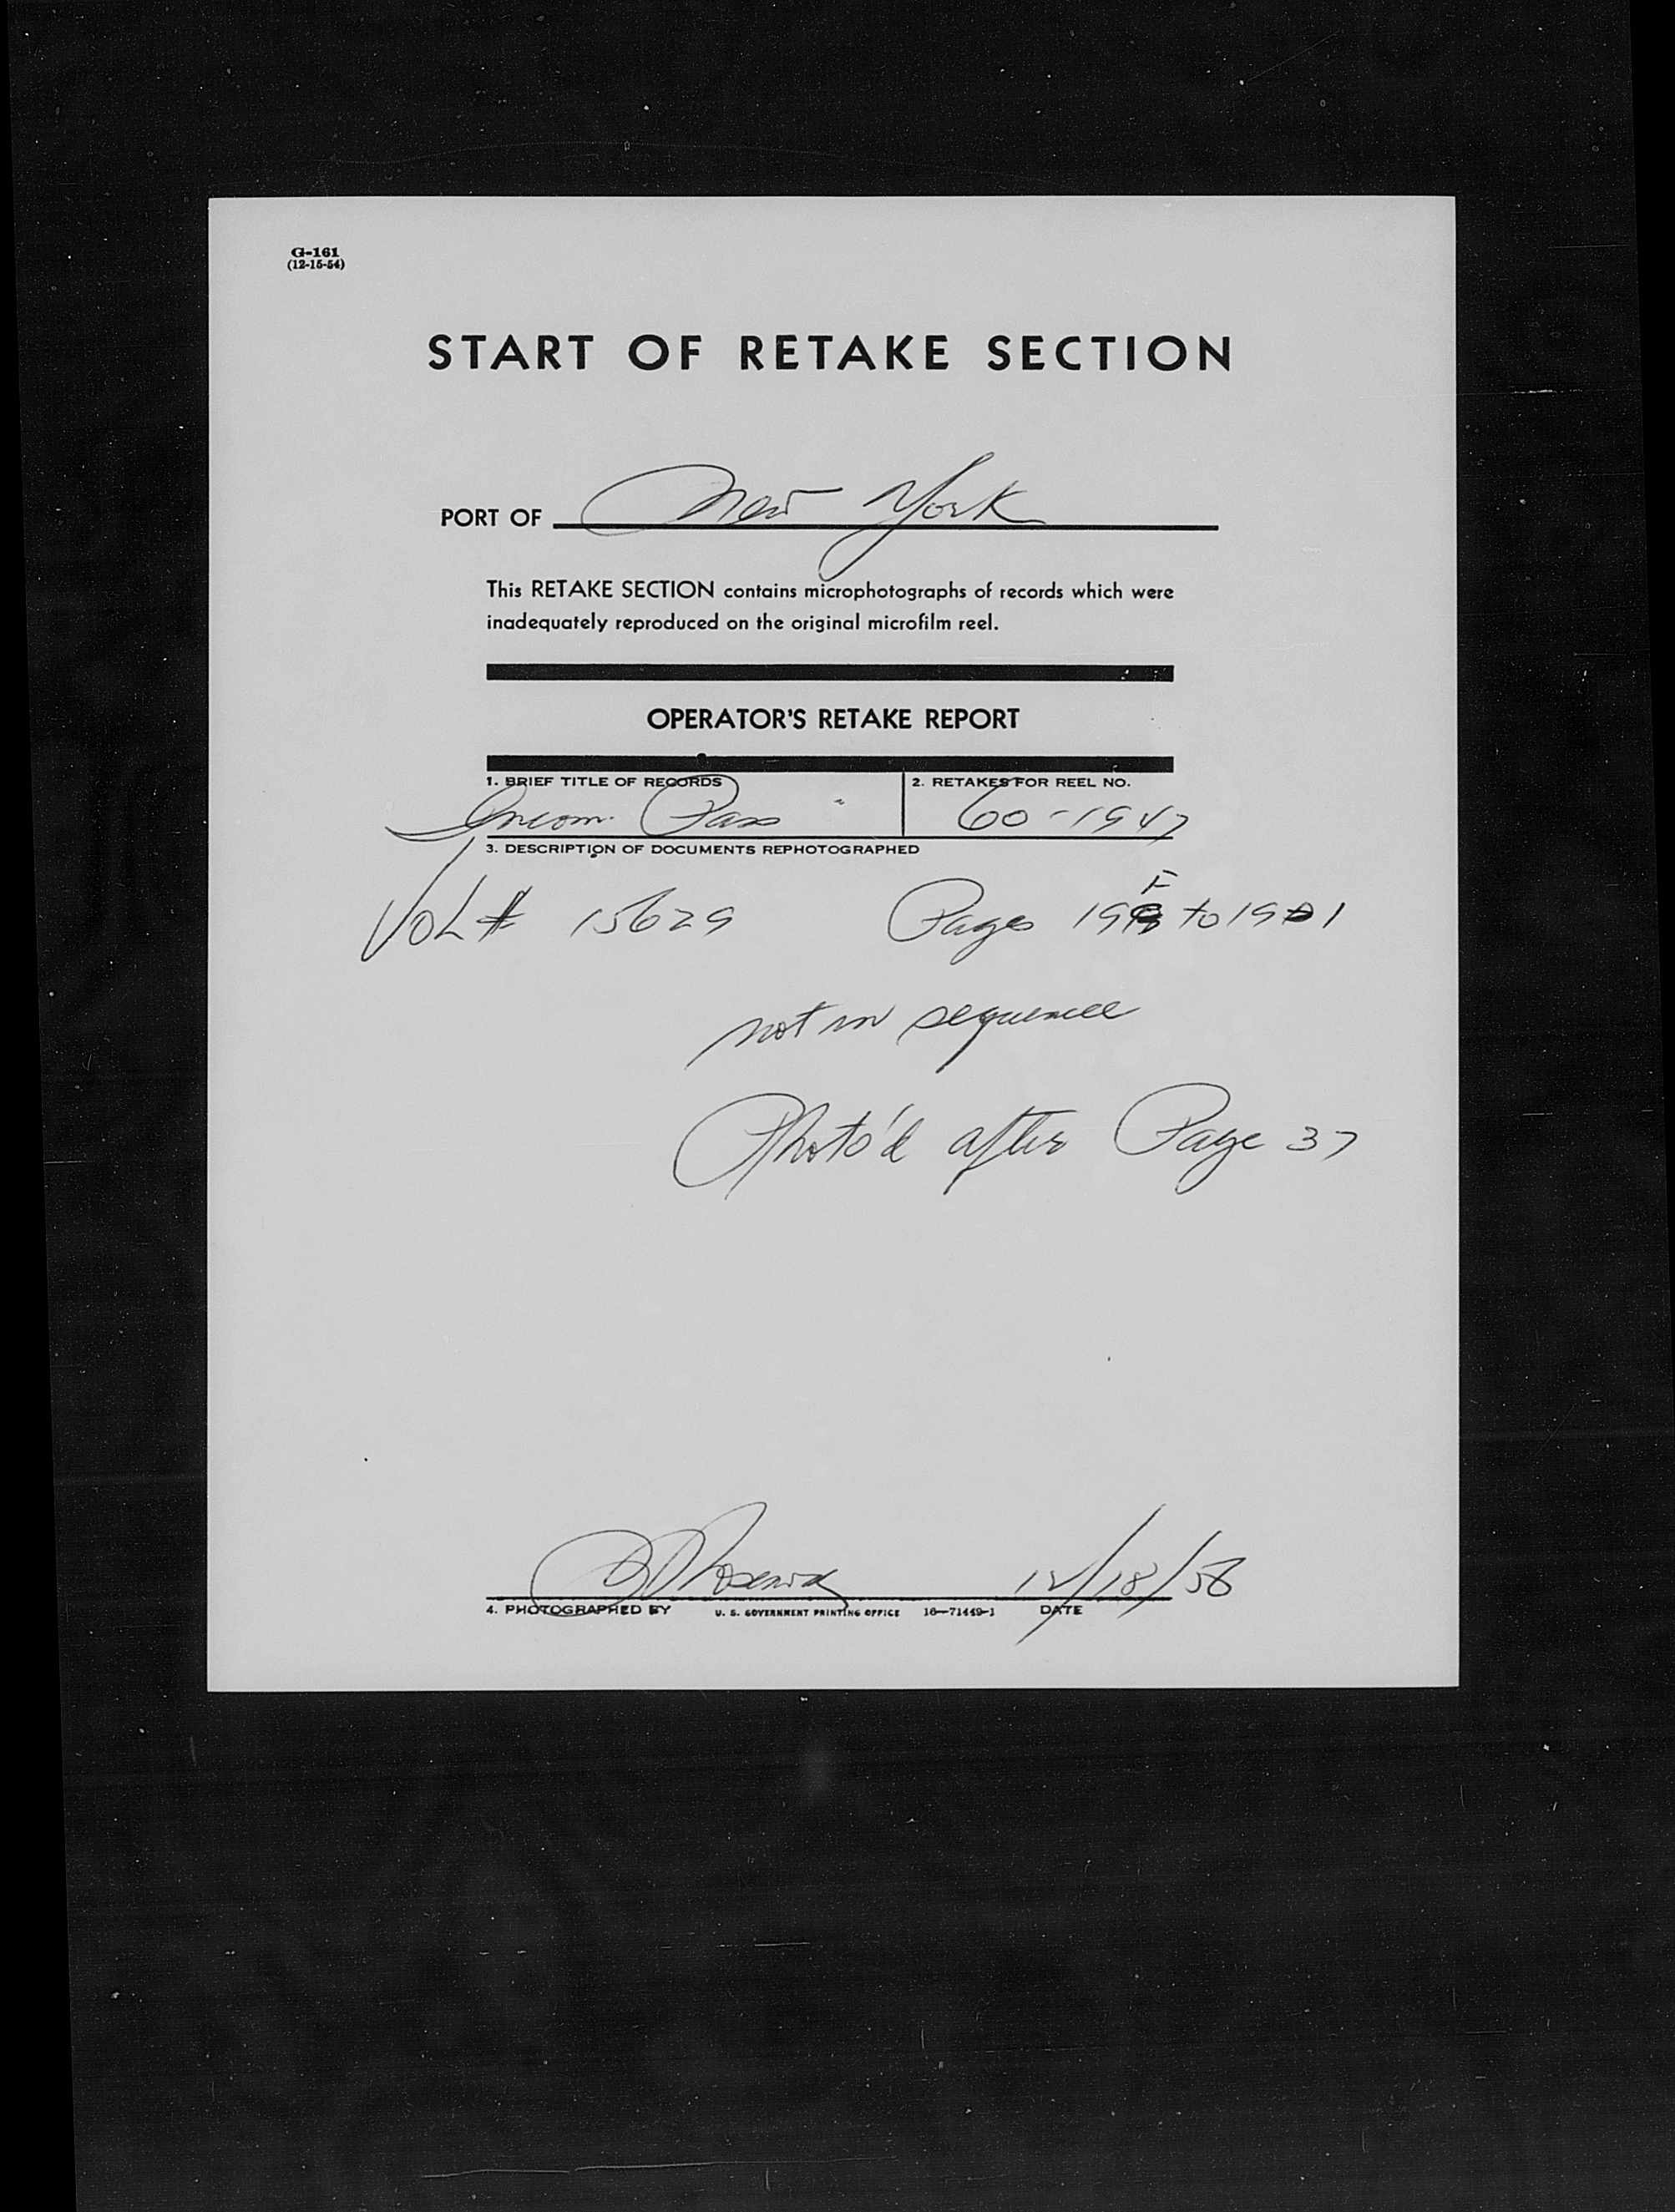 G-161
(12-15-54)
START OF RETAKE SECTION
PORT OF New York
This RETAKE SECTION contains microphotographs of records which were
inadequately reproduced on the original microfilm reel.
OPERATOR'S RETAKE REPORT
1. BRIEF TITLE OF RECORDS 2. RETAKES FOR REEL NO.
Incom. Pass 60-1947
3. DESCRIPTION OF DOCUMENTS REPHOTOGRAPHED
VOL # 15629 Pages to
not in sequence
Photo'd after Page 37
12/18/56
4. PHOTOGRAPHED BY U. S. GOVERNMENT PRINTING OFFICE 16—71449-1 DATE